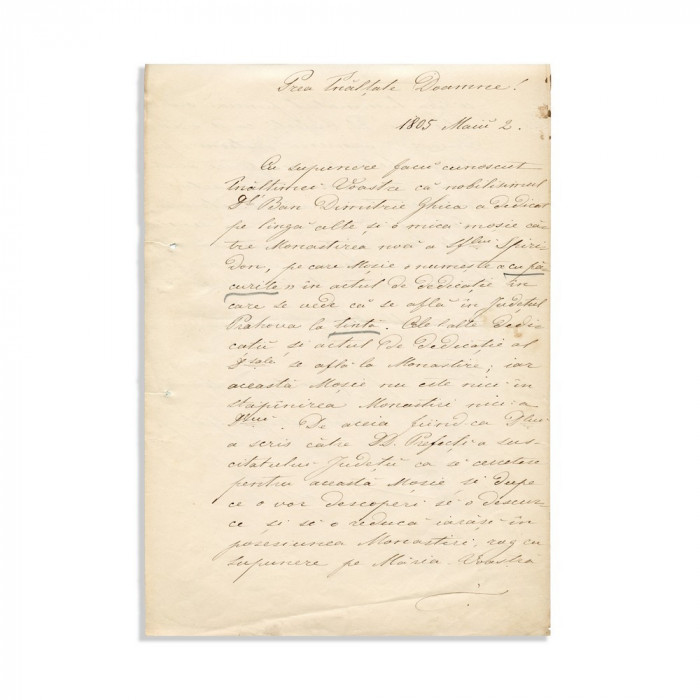 Prea Înălțate Doamne!
1805 Maiŭ 2.
Cu supunere facŭ cunoscut
Înălțimei Voastre că nobilisimul
Dl Ban Dimitrie Ghica a dedicat
pe lingă alte și o mică mosie că-
tre Monastirea nouă a Sflui Spiri-
don, pe care Mosie numește «cu pă-
curite» în actul de dedicație în
care se vede că se află în Județul
Prahova la tintă. Cle lalte dedic
catii si actul de dedicație al
D sale se află la Monastire; iar
această Mosie nu este nici în
stapînirea Monastiri nici a
Dlui. De aceia fiind ca Dlui
a scris către DD. Prefecți a sus-
citatului Județŭ ca să cerceteze
pentru această Mosie si dupe
ce o vor descoperi s'o descur-
ce și se o reducă iarăsĭ în
posesiunea Monastiri, rog cu
supunere pe Măria Voastră